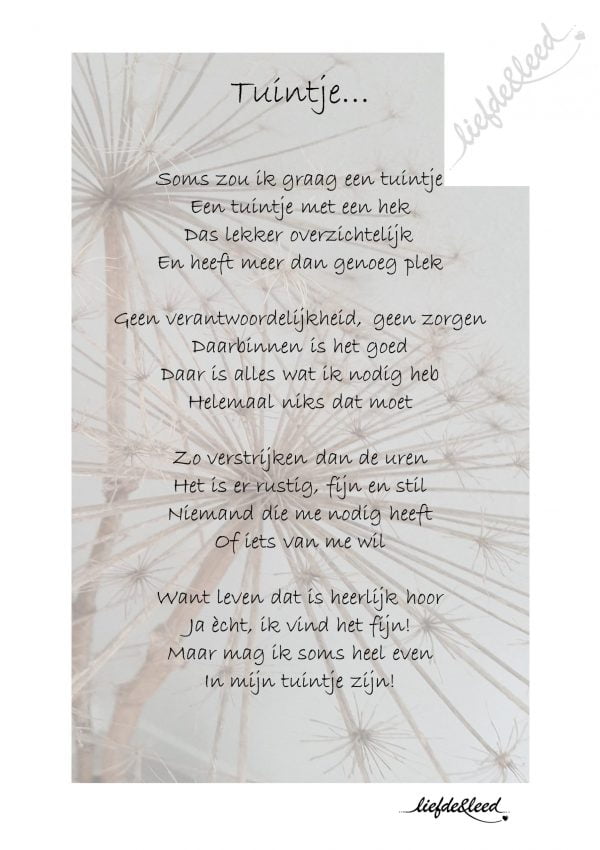 liefde&leed
Tuintje...
Soms zou ik graag een tuintje
Een tuintje met een hek
Das lekker overzichtelijk
En heeft meer dan genoeg plek
Geen verantwoordelijkheid, geen zorgen
Daarbinnen is het goed
Daar is alles wat ik nodig heb
Helemaal niks dat moet
Zo verstrijken dan de uren
Het is er rustig, fijn en stil
Niemand die me nodig heeft
Of iets van me wil
Want leven dat is heerlijk hoor
Ja ècht, ik vind het fijn!
Maar mag ik soms heel even
In mijn tuintje zijn!
liefde&leed